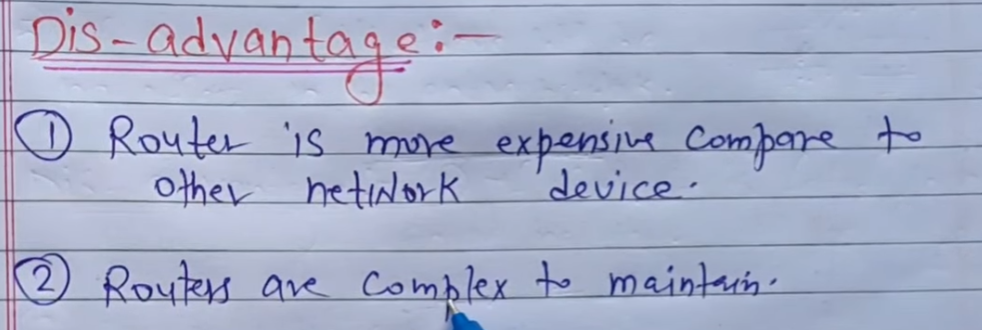 Dis-advantage:-
① Router is more expensive Compare to
other network device.
② Routers are complex to maintain.